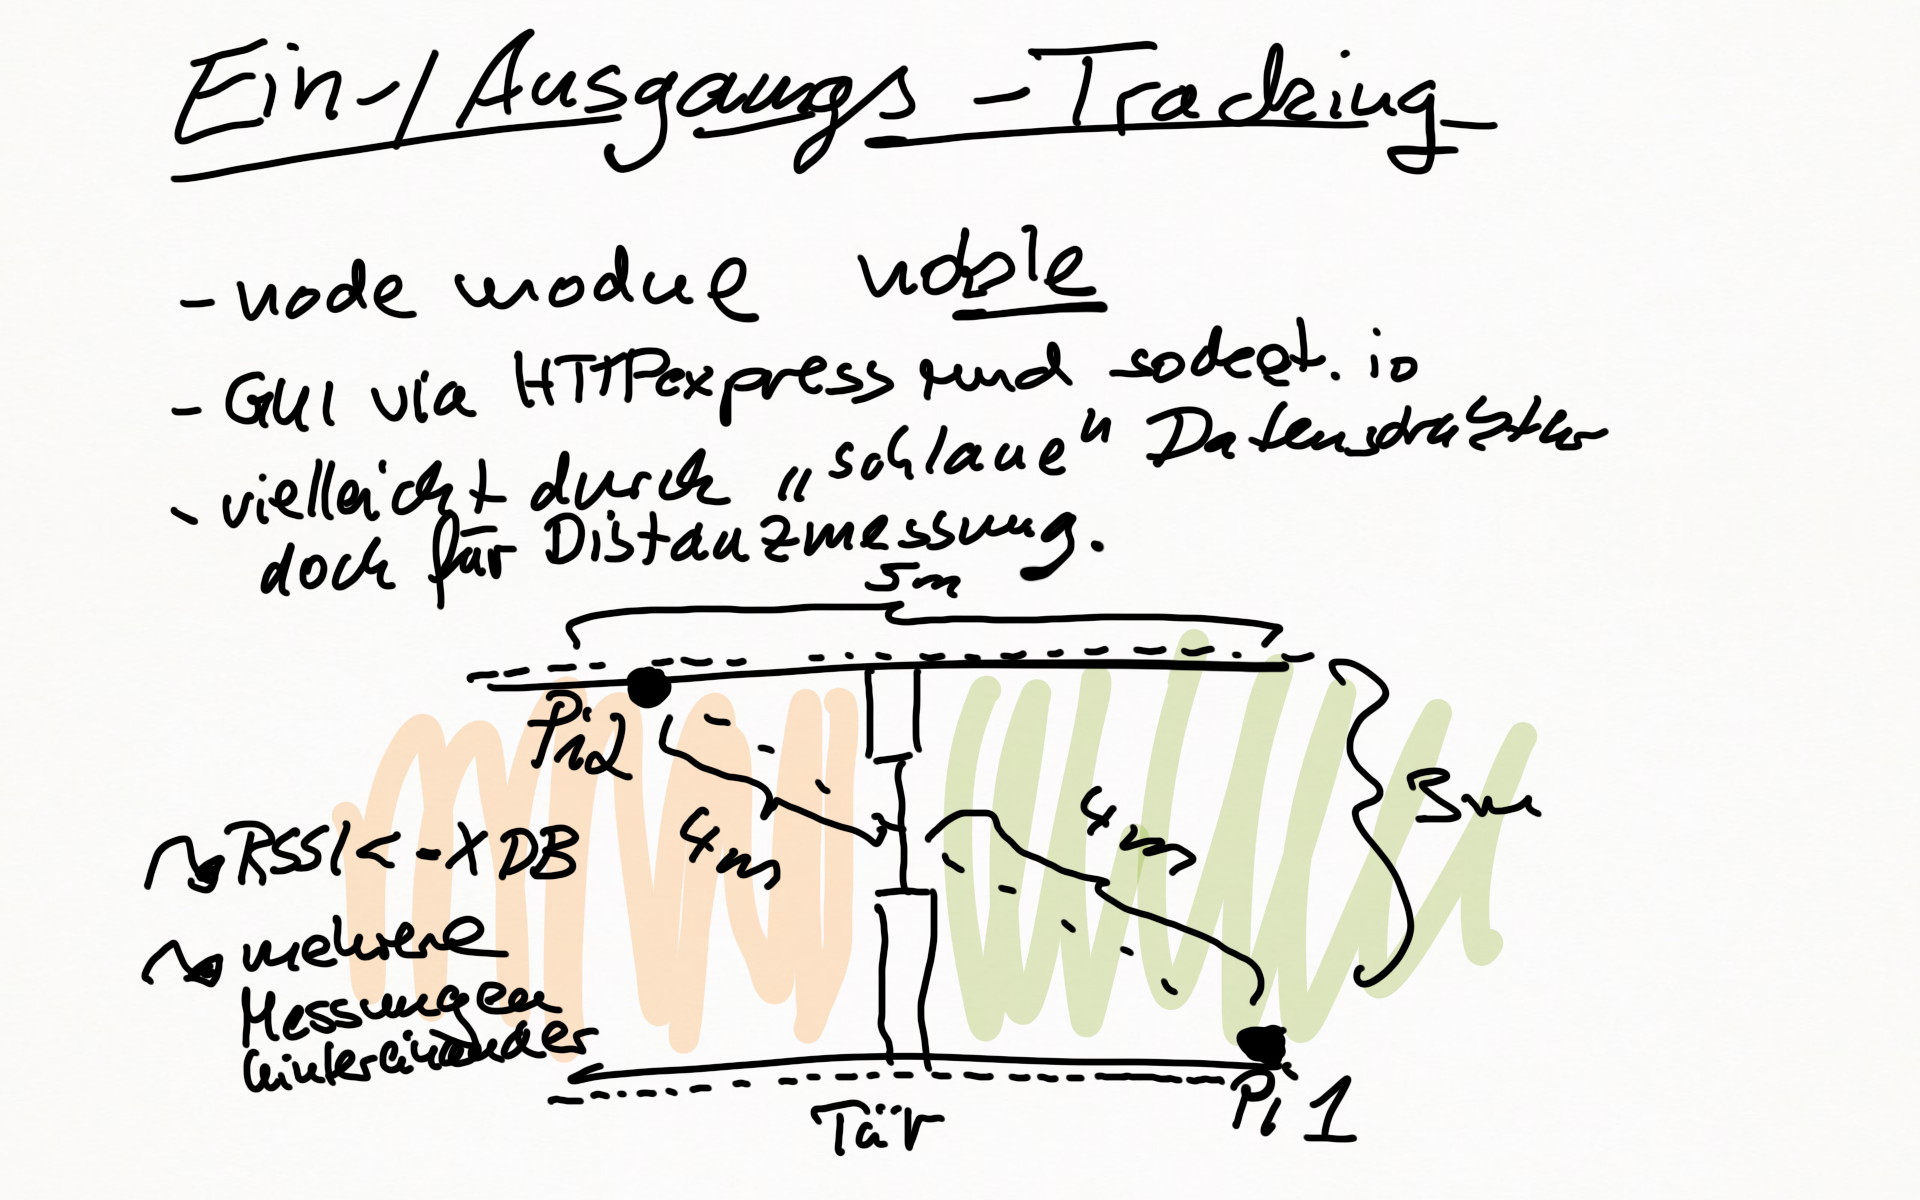 Ein-/Ausgangs-Tracking
- node module noble
- GUI via HTTPexpress und socket.io
- vielleicht durch „schlaue"
doch für Distanzmessung.
5m
Pi2
4m
4m
3m
RSSI < -X DB
mehrere
Messungen
hintereinander
Pi 1
Tür